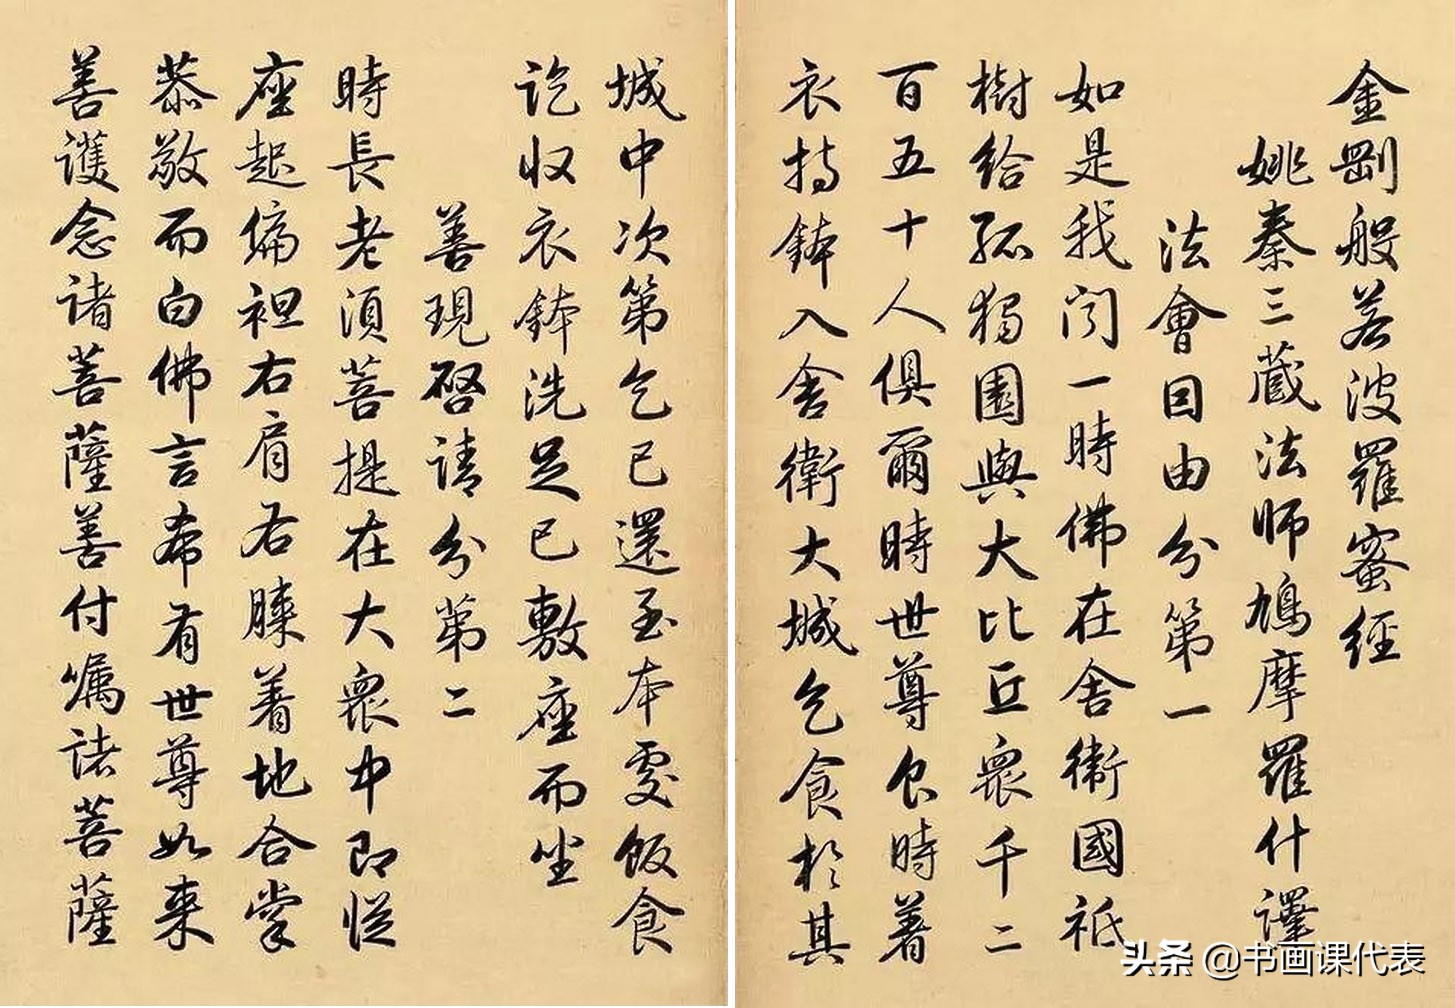 金剛般若波羅蜜經
姚秦三藏法師鳩摩羅什譯
法會因由分第一
如是我聞一時佛在舍衛國祇
樹給孤獨園與大比丘衆千二
百五十人俱爾時世尊食時著
衣持鉢入舍衛大城乞食於其
城中次第乞已還至本處飯食
訖收衣鉢洗足已敷座而坐
善現啓請分第二
時長老須菩提在大衆中即從
座起偏袒右肩右膝着地合掌
恭敬而白佛言希有世尊如来
善護念諸菩薩善付囑諸菩薩
头条 @书画课代表